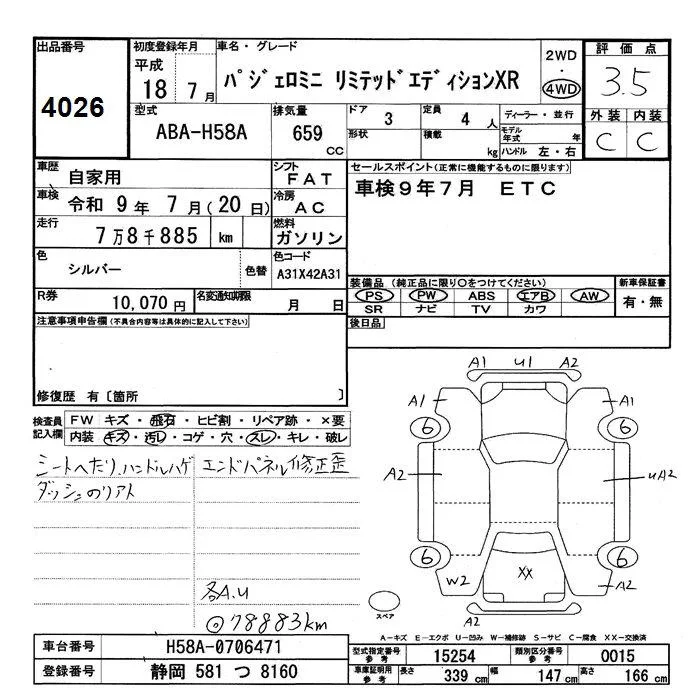 出品番号
4026
初度登録年月
平成
18 7月
車名・グレード
パジェロミニ リミテッドエディションXR
2WD
・
4WD
評価点
3.5
外装 内装
C C
型式
ABA-H58A
排気量
659
CC
ドア
3
形状
定員
4 人
積載
kg
ディーラー・並行
モデル年式 年
ハンドル 左・右
車歴
自家用
シフト
FAT
車検
令和 9年 7月(20日)
冷房
AC
走行
7万8千885 km
燃料
ガソリン
色
シルバー
色替
色コード
A31X42A31
R券
10,070円
名変通知期限
月 日
セールスポイント(正常に機能するものに限ります)
車検9年7月 ETC
装備品 (純正品に限り○をつけてください)
PS PW ABS エアB AW
SR ナビ TV カワ
新車保証書
有・無
後日品
注意事項申告欄(不具合内容等は具体的に記入して下さい)
修復歴 有〔箇所 〕
検査員
記入欄
FW キズ・飛石・ヒビ割・リペア跡・×要
内装 キズ・汚レ・コゲ・穴・スレ・キレ・破レ
シートヘたり、ハンドルハゲ
ダッシュのリアト
エンドパネル修正歪
各A.U
◎78883km
A1 U1 A2
A1 A1
6 6
A2 UA2
6 6
W2 XX A2
A2
スペア
A-キズ E-エクボ U-凹み W-補修跡 S-サビ C-腐食 XX-交換済
車台番号
H58A-0706471
登録番号
静岡 581 つ 8160
型式指定番号
参考
15254
類別区分番号
参考
0015
車庫証明用
参考
長さ 339 cm 幅 147 cm 高さ 166 cm